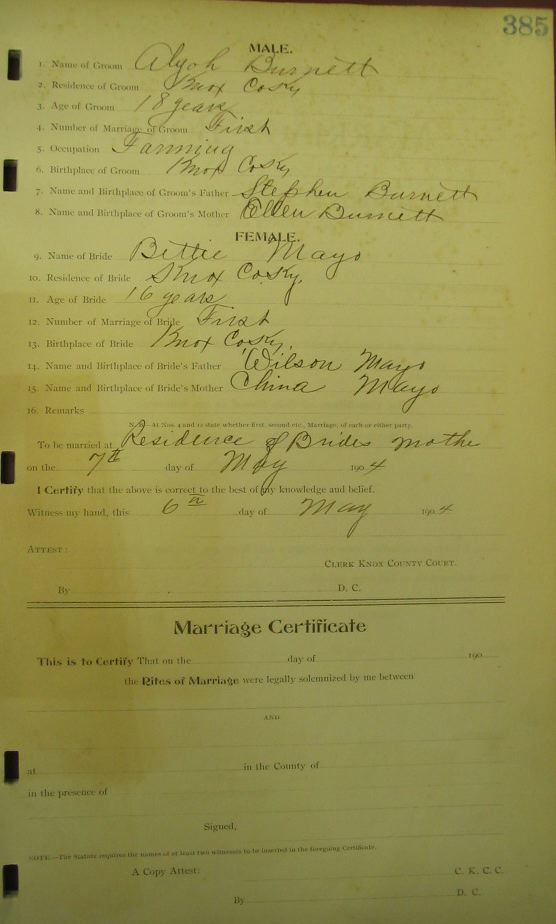 385
MALE.
1. Name of Groom Alyoh Burnett
2. Residence of Groom Knox Co Ky
3. Age of Groom 18 years
4. Number of Marriage of Groom First
5. Occupation Farming
6. Birthplace of Groom Knox Co Ky
7. Name and Birthplace of Groom's Father Stephen Burnett
8. Name and Birthplace of Groom's Mother Ellen Burnett
FEMALE.
9. Name of Bride Bettie Mayo
10. Residence of Bride Knox Co. Ky.
11. Age of Bride 16 years
12. Number of Marriage of Bride First
13. Birthplace of Bride Knox Co Ky.
14. Name and Birthplace of Bride's Father Wilson Mayo
15. Name and Birthplace of Bride's Mother China Mayo
16. Remarks
N. B.—At Nos. 4 and 12 state whether first, second etc., Marriage, of each or either party.
To be married at Residence of Brides Mothe
on the 7th day of May 1904
I Certify that the above is correct to the best of my knowledge and belief.
Witness my hand, this 6th day of May 1904
ATTEST:
CLERK KNOX COUNTY COURT.
By D. C.
Marriage Certificate
This is to Certify That on the day of 190
the Rites of Marriage were legally solemnized by me between
AND
at in the County of
in the presence of
Signed,
NOTE.—The Statute requires the names of at least two witnesses to be inserted in the foregoing Certificate.
A Copy Attest: C. K. C. C.
By D. C.